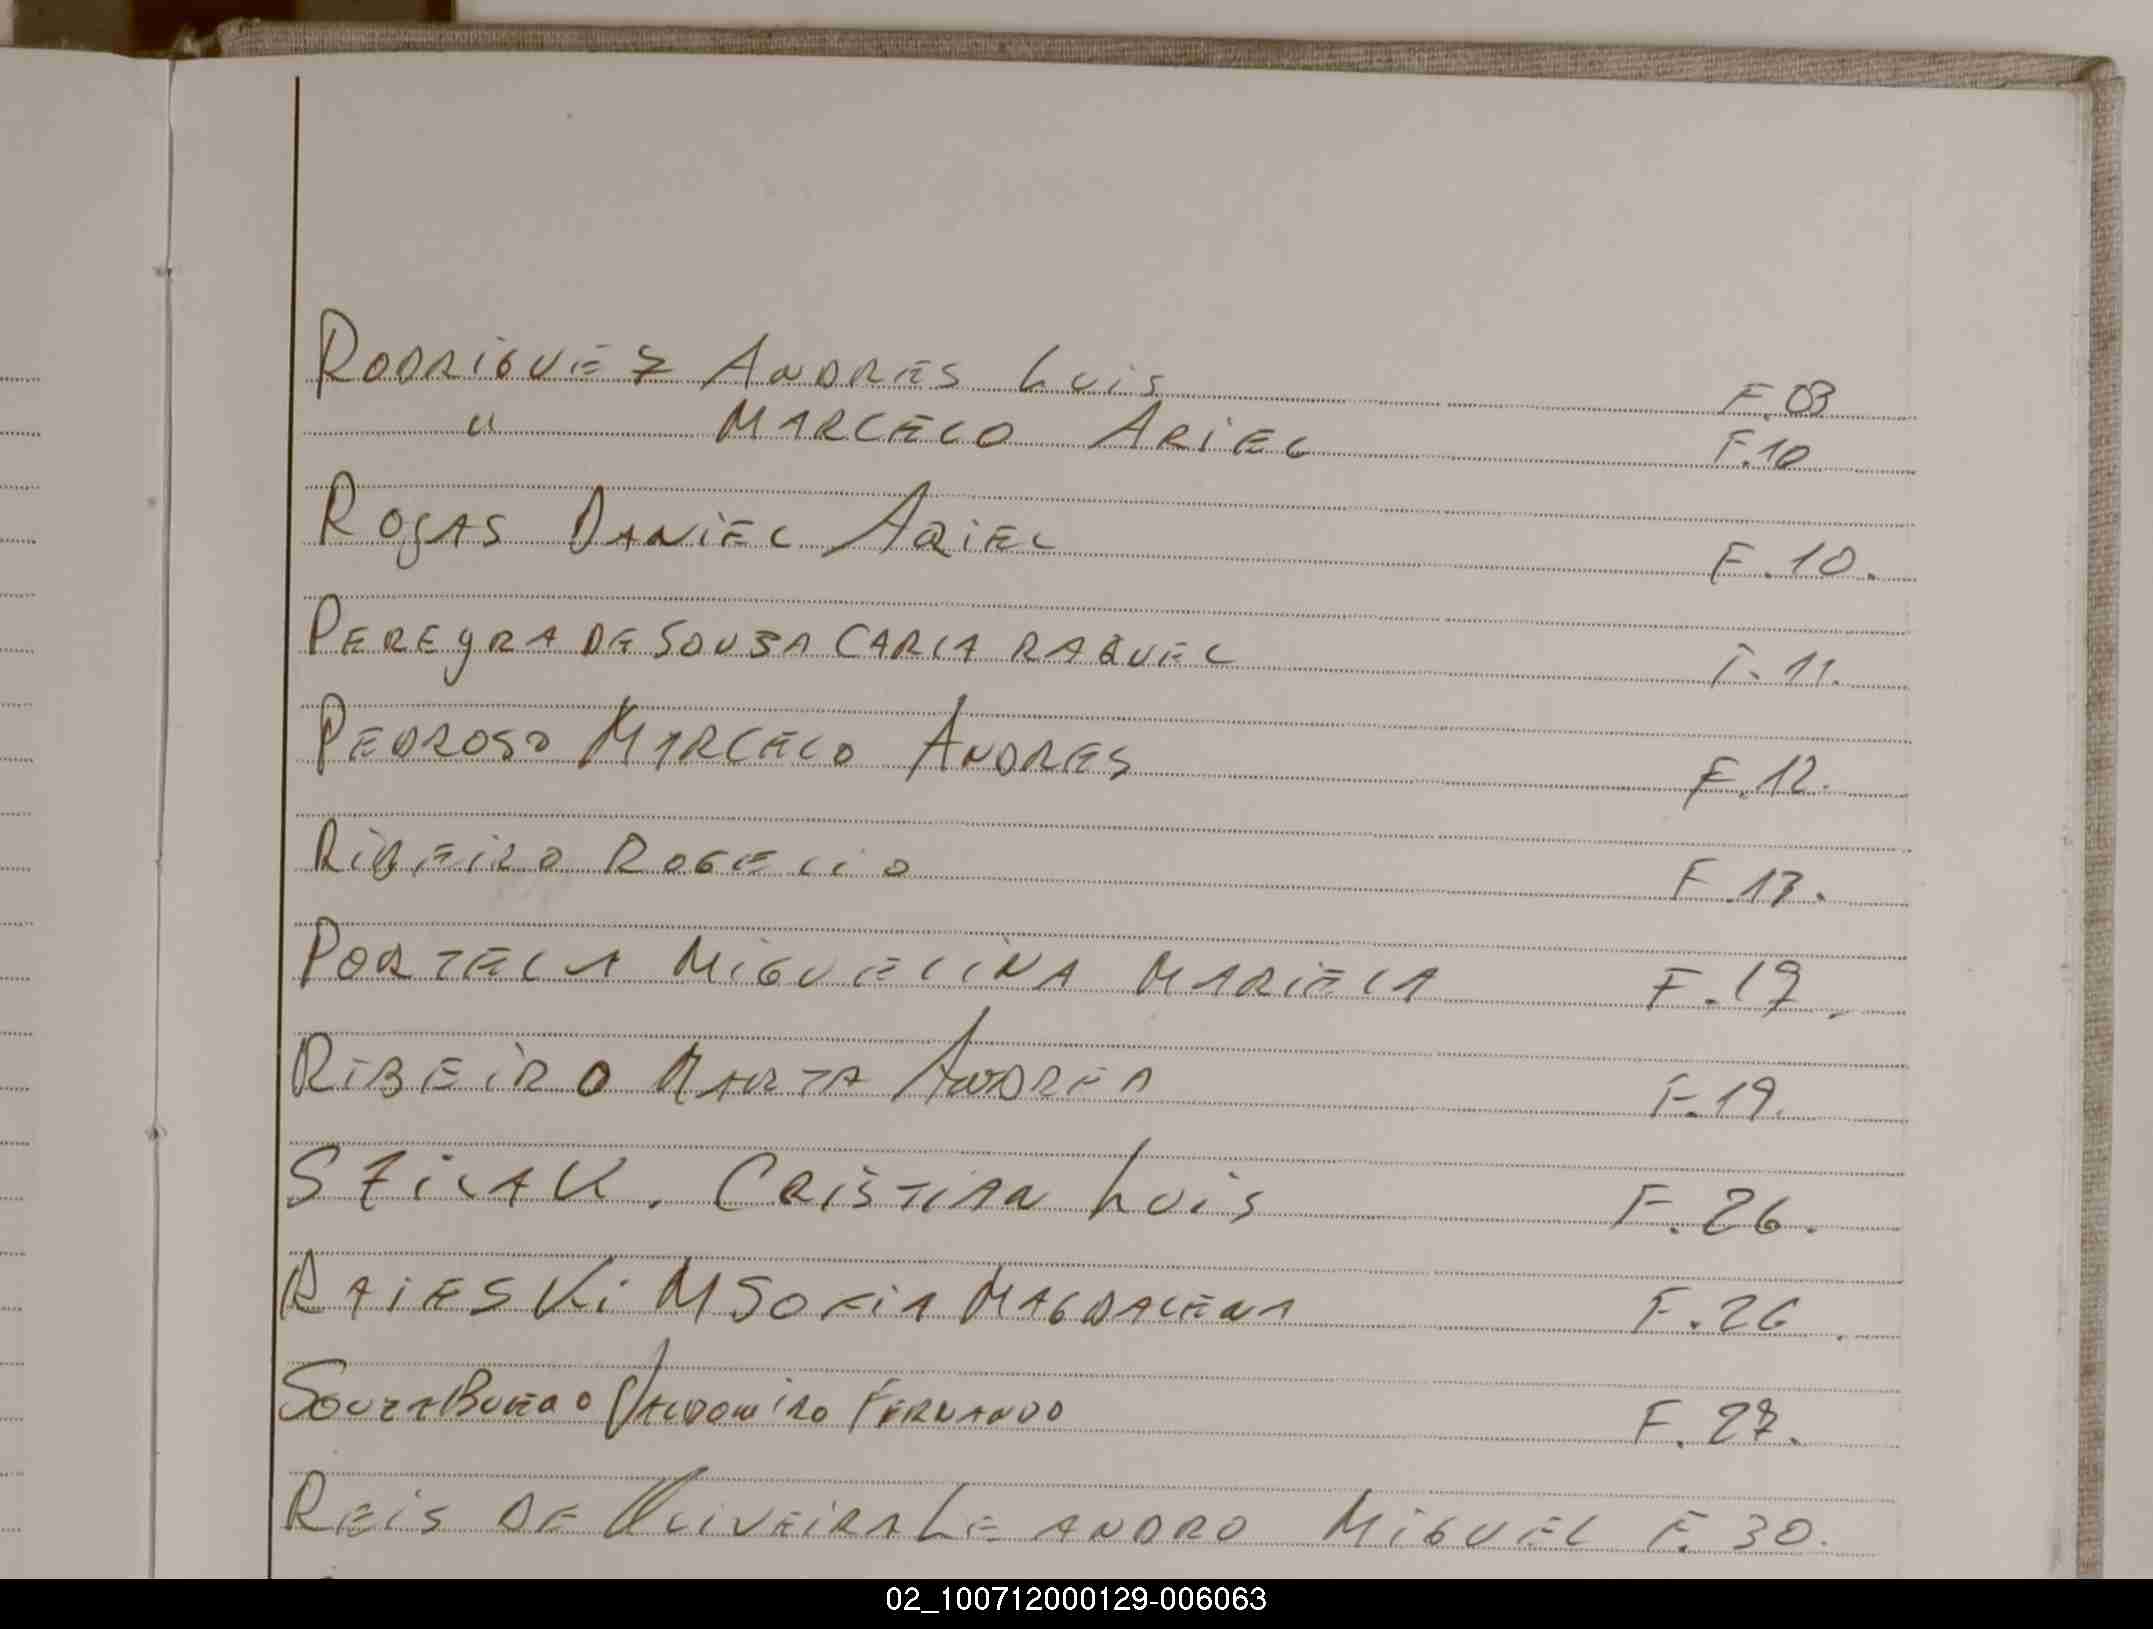 RODRIGUEZ ANDRES LUIS F.03
" MARCELO ARIEL F.10
ROJAS DANIEL ARIEL F.10.
PEREYRA DE SOUZA CARLA RAQUEL F.11.
PEDROSO MARCELO ANDRES F.12.
RIBEIRO ROGELIO F.13.
PORTELA MIGUELINA MARIELA F.17.
RIBEIRO MARTA ANDREA F.19.
SZILAK. CRISTIAN LUIS F.26.
RAIESKI M SOFIA MAGDALENA F.26.
SOUZA BUENO VALDOMIRO FERNANDO F.27.
REIS DE OLIVEIRA LEANDRO MIGUEL F.30.
02_100712000129-006063